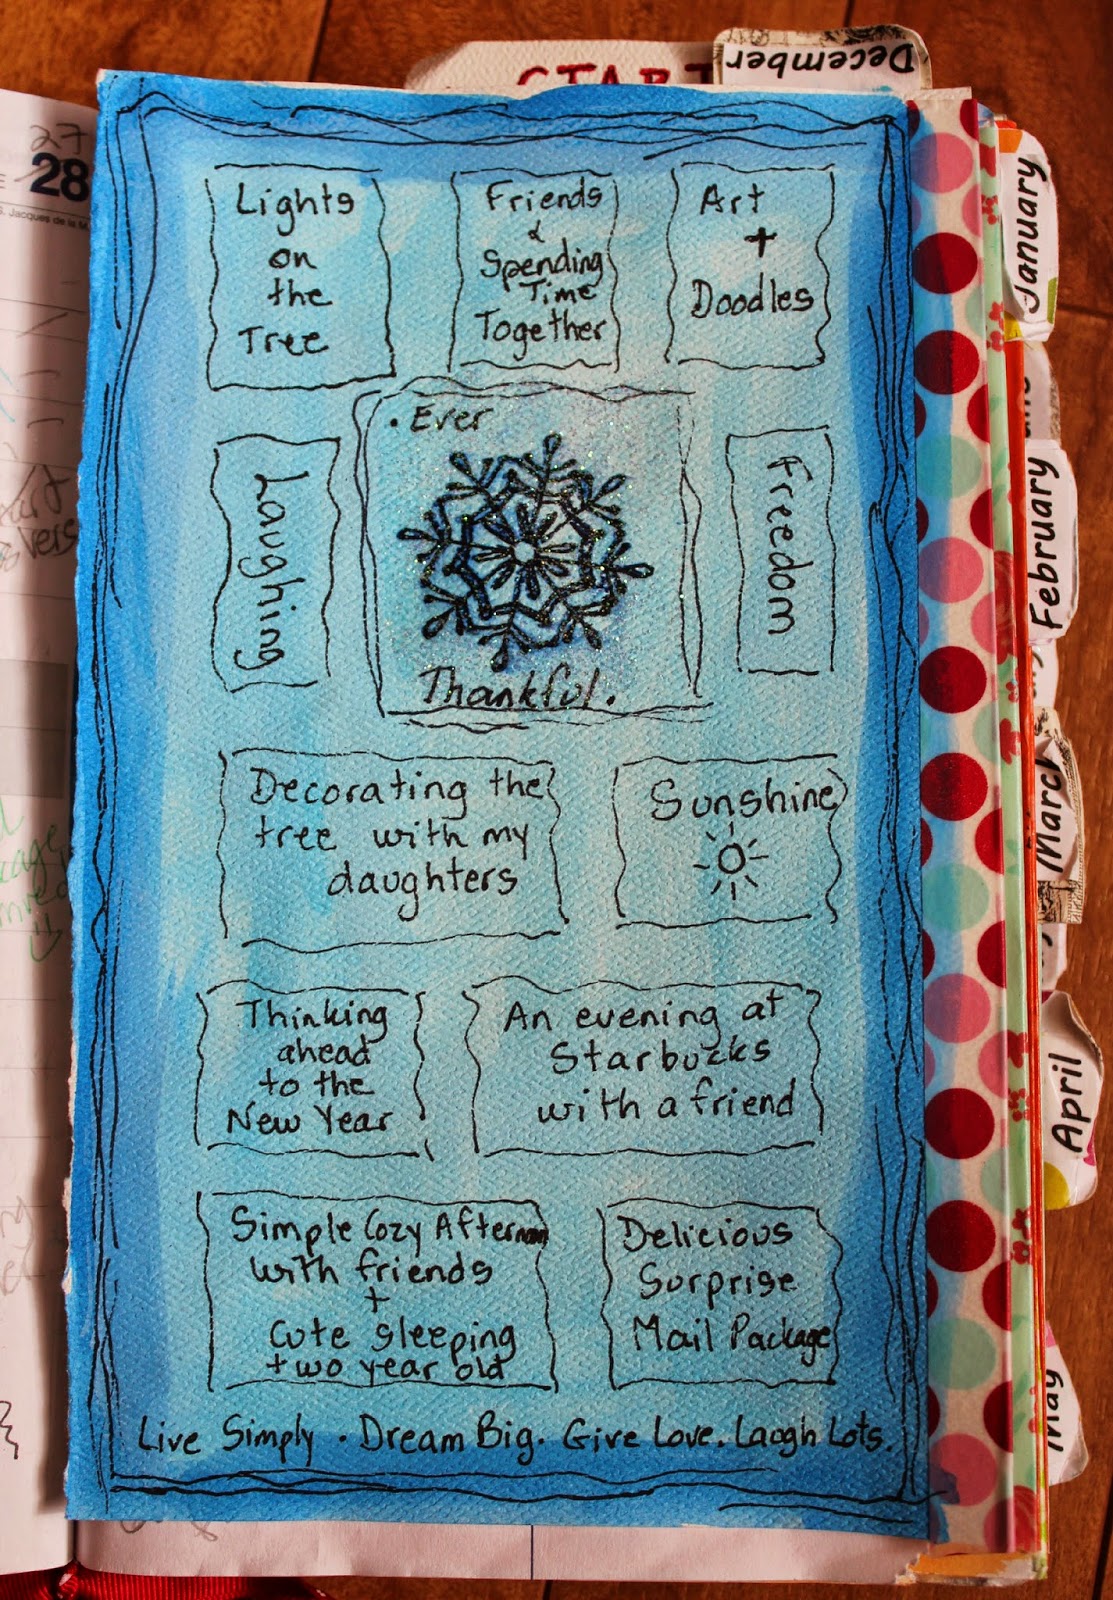 START
December
27
28
S. Jacques de la M
Lights
on
the
Tree
Friends
&
Spending
Time
Together
Art
+
Doodles
Laughing
• Ever
Thankful.
Freedom
Decorating the
tree with my
daughters
Sunshine
Thinking
ahead
to the
New Year
An evening at
Starbucks
with a friend
Simple Cozy Afternoon
with friends
+
Cute sleeping
two year old
Delicious
Surprise
Mail Package
Live Simply • Dream Big. Give Love. Laugh Lots.
January
February
March
April
May